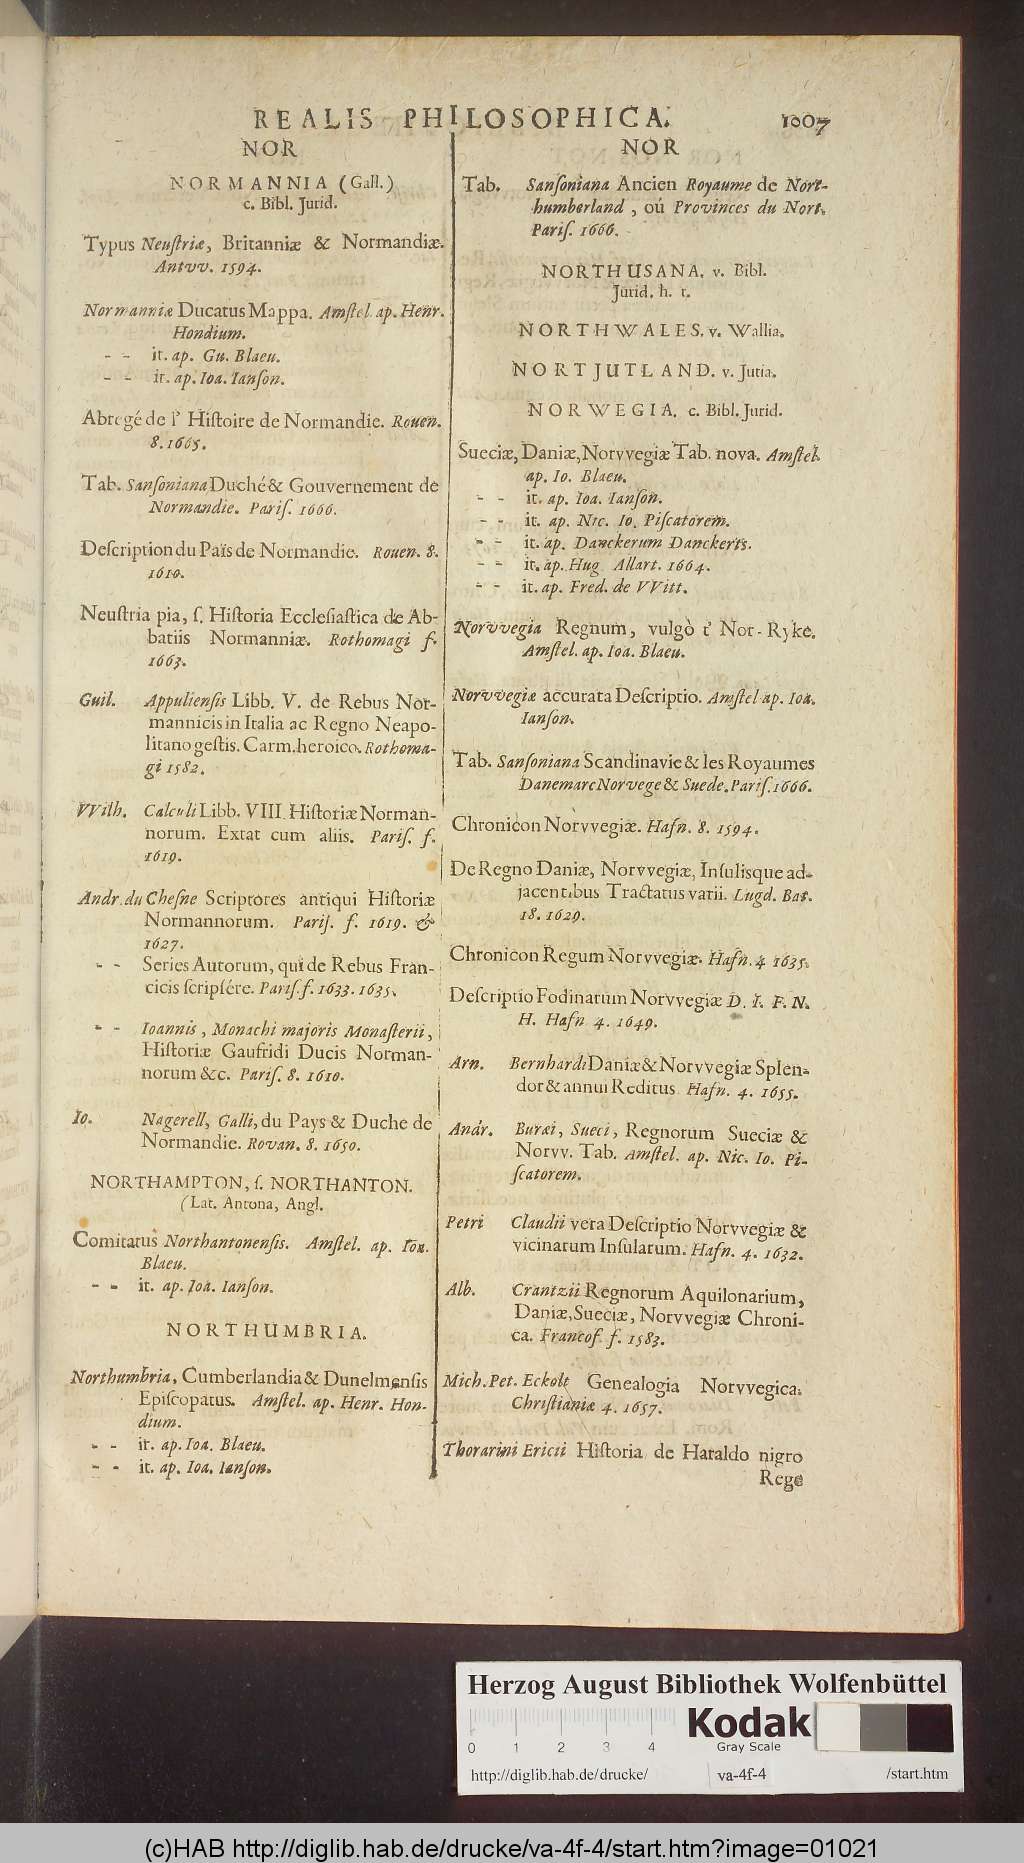 REALIS PHILOSOPHICA. 1007
NOR
NORMANNIA (Gall.)
c. Bibl. Jurid.
Typus Neuſtriæ, Britanniæ & Normandiæ.
Antvv. 1594.
Normanniæ Ducatus Mappa. Amſtel. ap. Henr.
Hondium.
- - it. ap. Gu. Blaeu.
- - it. ap. Ioa. Ianſon.
Abregé de l' Hiſtoire de Normandie. Rouen.
8. 1665.
Tab. Sanſoniana Duché & Gouvernement de
Normandie. Pariſ. 1666.
Deſcription du Païs de Normandie. Rouen. 8.
1610.
Neuſtria pia, ſ. Hiſtoria Eccleſiaſtica de Ab-
batiis Normanniæ. Rothomagi f.
1663.
Guil. Appulienſis Libb. V. de Rebus Nor-
mannicis in Italia ac Regno Neapo-
litano geſtis. Carm. heroico. Rothoma-
gi 1582.
VVilh. Calculi Libb. VIII. Hiſtoriæ Norman-
norum. Extat cum aliis. Pariſ. f.
1619.
Andr. du Cheſne Scriptores antiqui Hiſtoriæ
Normannorum. Pariſ. f. 1619. &
1627.
- - Series Autorum, qui de Rebus Fran-
cicis ſcripſére. Pariſ. f. 1633. 1635.
- - Ioannis, Monachi majoris Monaſterii,
Hiſtoriæ Gaufridi Ducis Norman-
norum &c. Pariſ. 8. 1610.
Io. Nagerell, Galli, du Pays & Duche de
Normandie. Rovan. 8. 1650.
NORTHAMPTON, ſ. NORTHANTON.
(Lat. Antona, Angl.
Comitatus Northantonenſis. Amſtel. ap. Ioa.
Blaeu.
- - it. ap. Ioa. Ianſon.
NORTHUMBRIA.
Northumbria, Cumberlandia & Dunelmenſis
Epiſcopatus. Amſtel. ap. Henr. Hon-
dium.
- - it. ap. Ioa. Blaeu.
- - it. ap. Ioa. Ianſon.
NOR
Tab. Sanſoniana Ancien Royaume de Nort-
humberland, oú Provinces du Nort.
Pariſ. 1666.
NORTHUSANA. v. Bibl.
Jurid. h. t.
NORTHWALES. v. Wallia.
NORTJUTLAND. v. Jutia.
NORWEGIA. c. Bibl. Jurid.
Sueciæ, Daniæ, Norvvegiæ Tab. nova. Amſtel.
ap. Io. Blaeu.
- - it. ap. Ioa. Ianſon.
- - it. ap. Nic. Io. Piſcatorem.
- - it. ap. Danckerum Danckerts.
- - it. ap. Hug Allart. 1664.
- - it. ap. Fred. de VVitt.
Norvvegia Regnum, vulgò t' Nor-Ryke.
Amſtel. ap. Ioa. Blaeu.
Norvvegiæ accurata Deſcriptio. Amſtel ap. Ioa.
Ianſon.
Tab. Sanſoniana Scandinavie & les Royaumes
Danemarc Norvege & Suede. Pariſ. 1666.
Chronicon Norvvegiæ. Hafn. 8. 1594.
De Regno Daniæ, Norvvegiæ, Inſulisque ad-
jacentibus Tractatus varii. Lugd. Bat.
18. 1629.
Chronicon Regum Norvvegiæ. Hafn. 4 1635.
Deſcriptio Fodinarum Norvvegiæ D. I. F. N.
H. Hafn 4. 1649.
Arn. Bernhardi Daniæ & Norvvegiæ Splen-
dor & annui Reditus Hafn. 4. 1655.
Andr. Buræi, Sueci, Regnorum Sueciæ &
Norvv. Tab. Amſtel. ap. Nic. Io. Pi-
ſcatorem.
Petri Claudii vera Deſcriptio Norvvegiæ &
vicinarum Inſularum. Hafn. 4. 1632.
Alb. Crantzii Regnorum Aquilonarium,
Daniæ, Sueciæ, Norvvegiæ Chroni-
ca. Francof. f. 1583.
Mich. Pet. Eckolt Genealogia Norvvegica.
Chriſtianiæ 4. 1657.
Thorarini Ericii Hiſtoria de Haraldo nigro
Rege
Herzog August Bibliothek Wolfenbüttel
0 1 2 3 4
Kodak
Gray Scale
http://diglib.hab.de/drucke/ va-4f-4 /start.htm
(c)HAB http://diglib.hab.de/drucke/va-4f-4/start.htm?image=01021